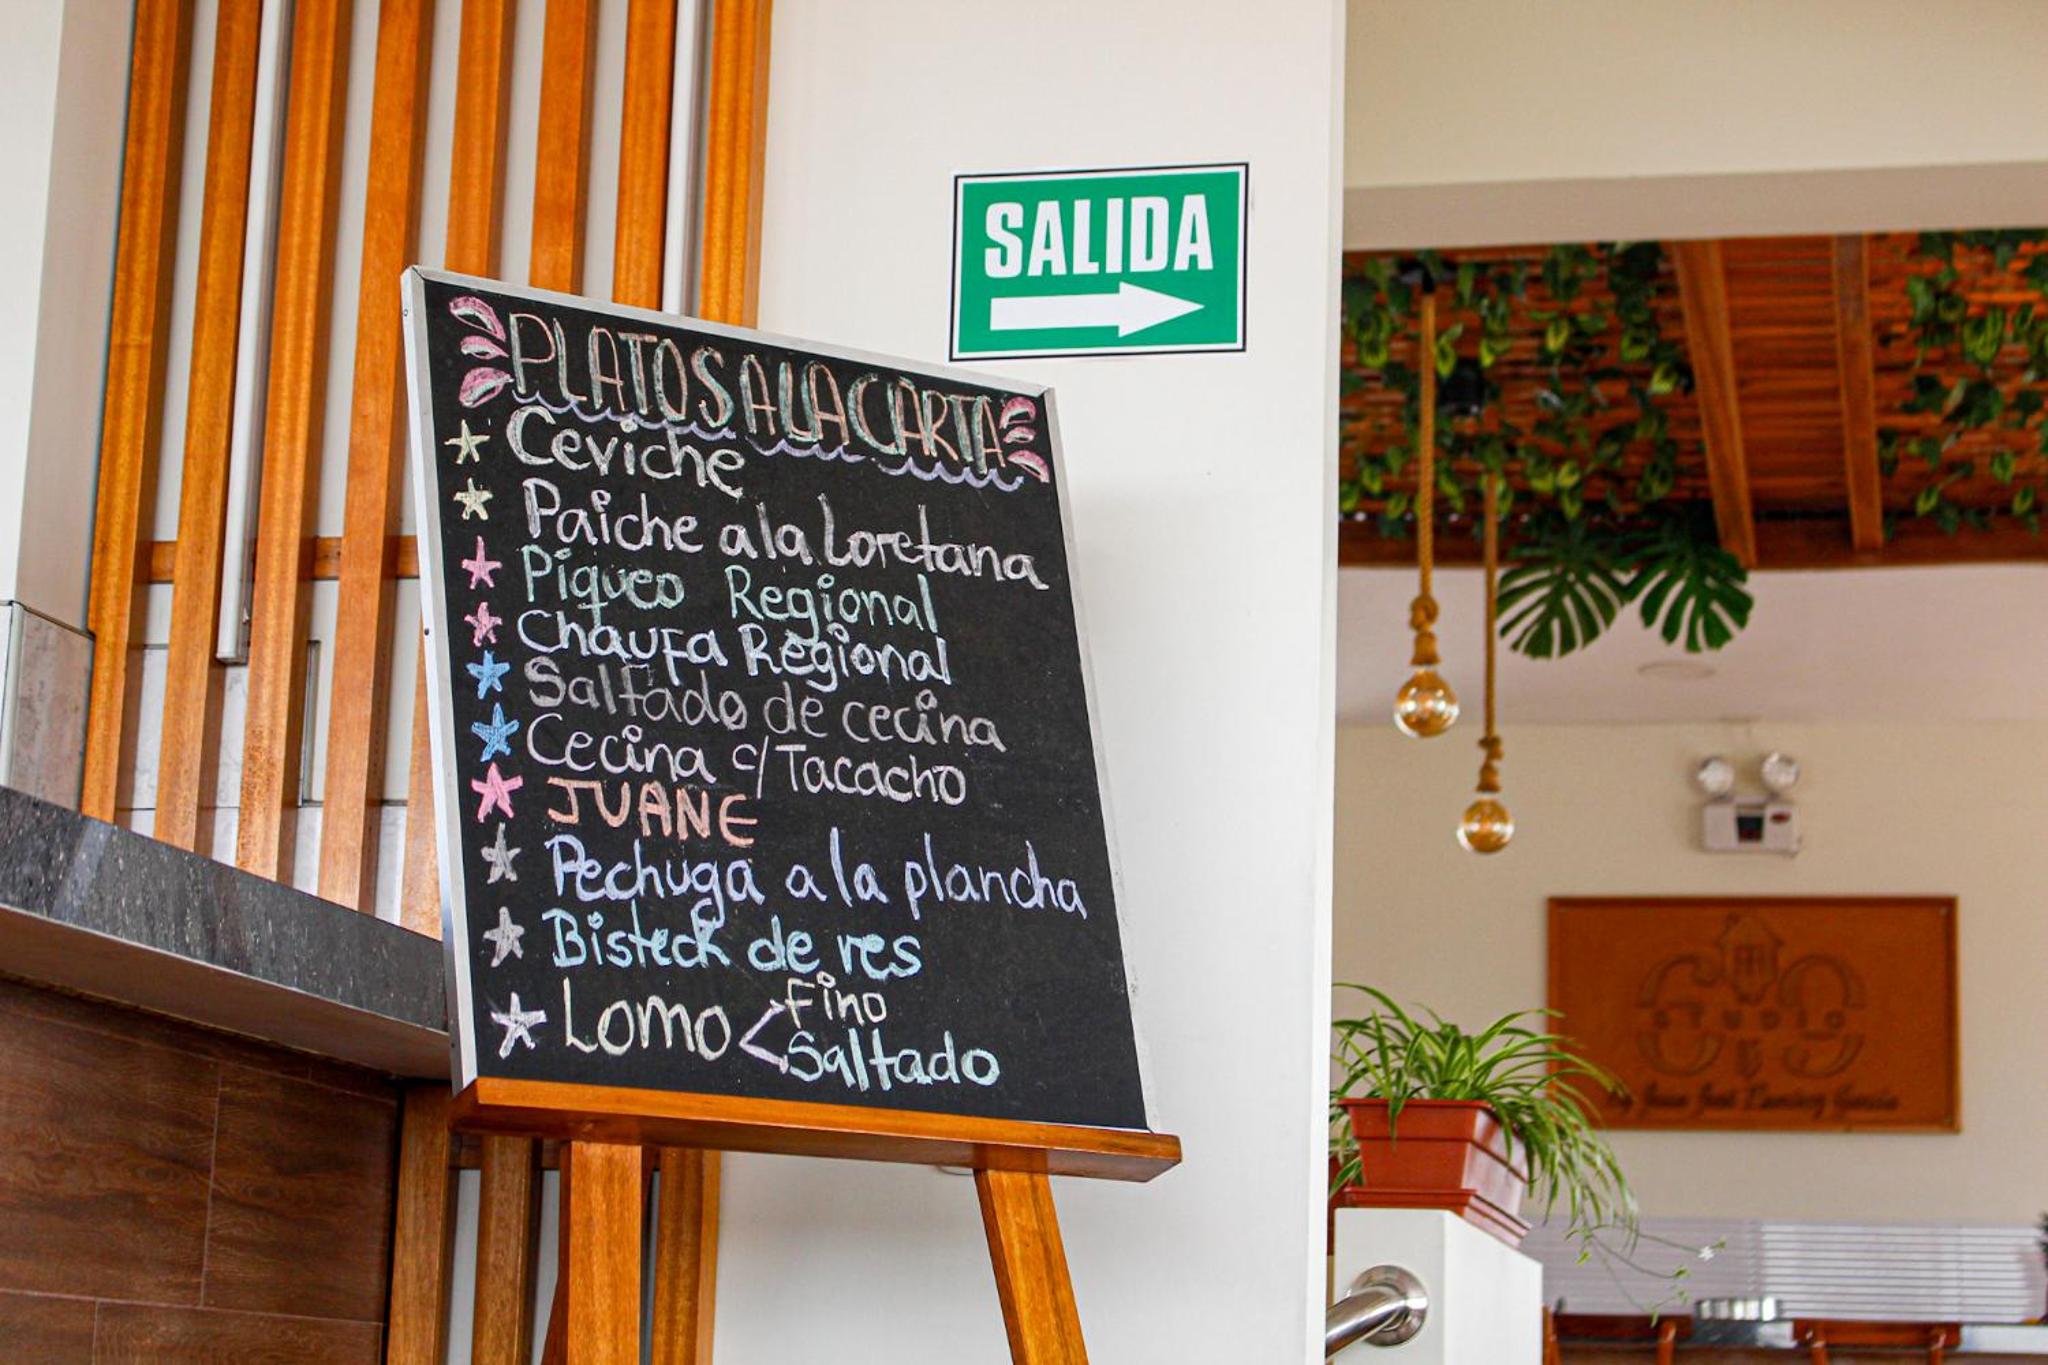 SALIDA
PLATOS A LA CARTA
Ceviche
Paiche a la Loretana
Piqueo Regional
Chaufa Regional
Saltado de cecina
Cecina c/Tacacho
JUANE
Pechuga a la plancha
Bisteck de res
Lomo < Fino
Saltado
STUDIO